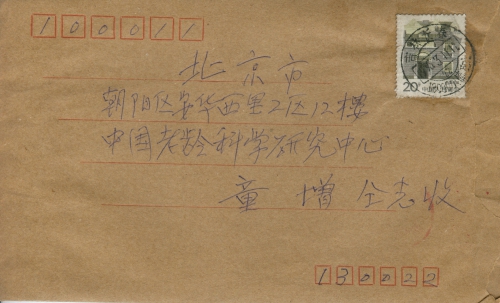 100011
北京市
朝阳区安华西里2区12楼
中国老龄科学研究中心
童增 仝志收
130022
20